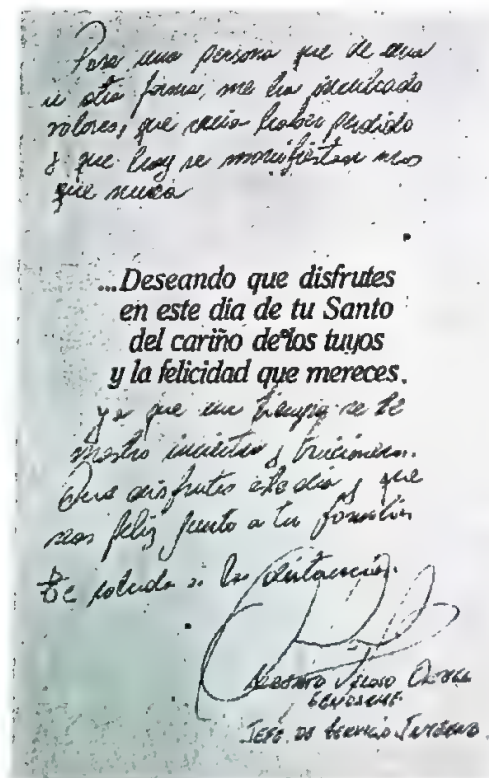 Para una persona que de una
u otra forma, me ha inculcado
valores, que creia haber perdido
y que hoy se manifiestan mas
que nunca
...Deseando que disfrutes
en este dia de tu Santo
del cariño de los tuyos
y la felicidad que mereces.
ya que un tiempo se te
mostro incierto y
Que disfrutes este dia y que
seas feliz junto a tu familia
Te saluda a la distancia.
Alberto
GENDARME
JEFE DE SERVICIO INTERNO